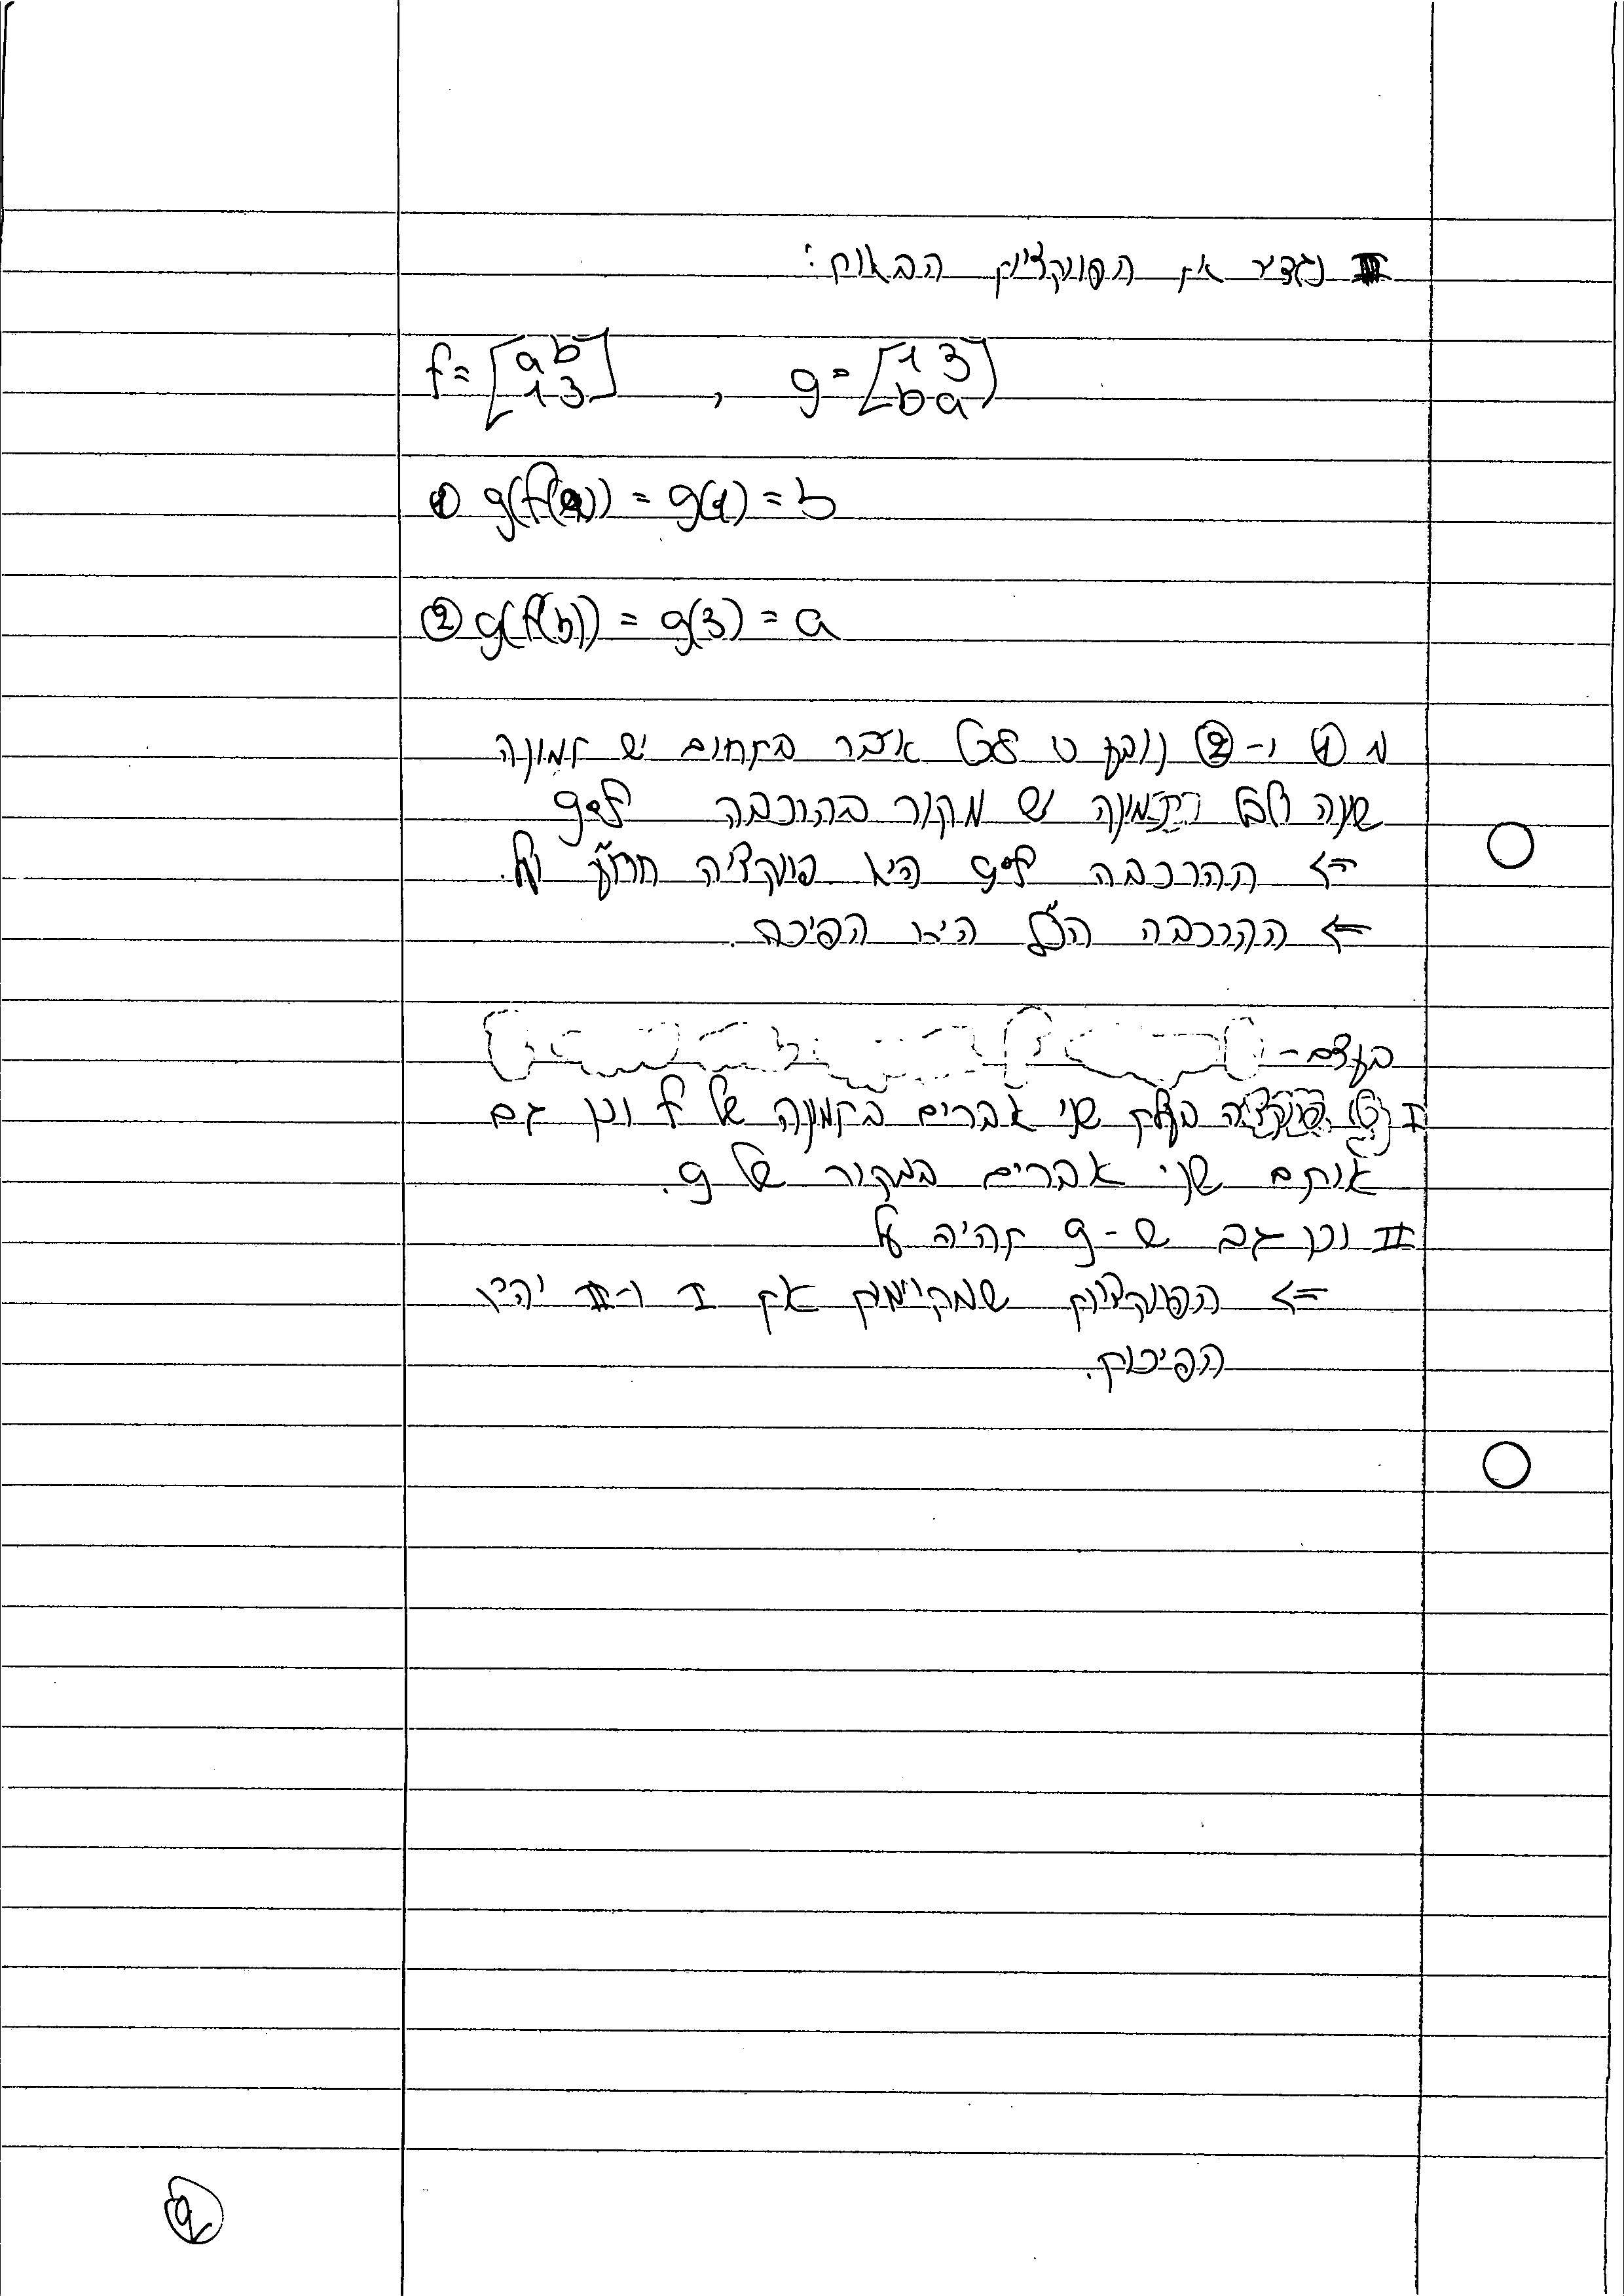 נגדיר את הפונקציות הבאות:
f = [a b / 1 3] , g = [1 3 / b a]
① g(f(a)) = g(1) = b
② g(f(b)) = g(3) = a
מ ① ו-② נובע כי לכל איבר בתחום יש תמונה
שונה ולכל תמונה יש מקור בהרכבה g∘f
<= ההרכבה g∘f היא פונקציה חח"ע ועל.
<= ההרכבה הנ"ל היא הפיכה.
בעצם -
I פונקציה בעלת שני אברים בתמונה של f וכן גם
אותם שני אברים במקור של g.
II וכן גם ש-g תהיה על
<= הפונקציות שמקיימות את I ו-II יהיו
הפיכות.
9